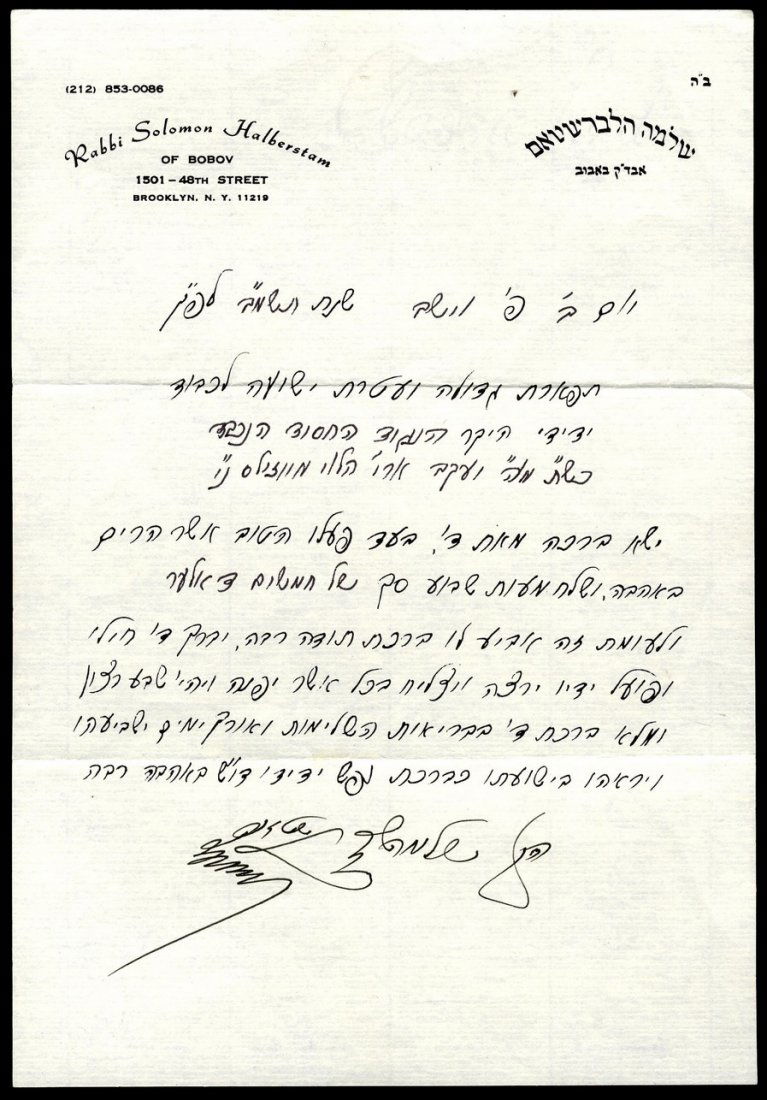 ב"ה
(212) 853-0086
Rabbi Solomon Halberstam
OF BOBOV
1501 – 48TH STREET
BROOKLYN, N. Y. 11219
שלמה הלברשטאם
אבד"ק באבוב
יום ב' פ' וישב שנת תשמ"ב לפ"ק
תפארת גדולה ועטרת ישועה לכבוד
ידידי היקר הנגיד החסיד הנכבד
כש"ת מו"ה יעקב ארי' הלוי נ"י
ישא ברכה מאת ד', בעד פעלו הטוב אשר הרים
באהבה, ושלח מעות שבוע סך של חמשים דאלער
ולעומת זה אביע לו ברכת תודה רבה, יברך ד' חילו
ופועל ידיו ירצה ויצליח בכל אשר יפנה ויהי' שבע רצון
ומלא ברכת ד' בבריאות השלימות ואורך ימים ישביעהו
ויראהו בישועתו כברכת נפש ידידו דו"ש באהבה רבה
הק' שלמה